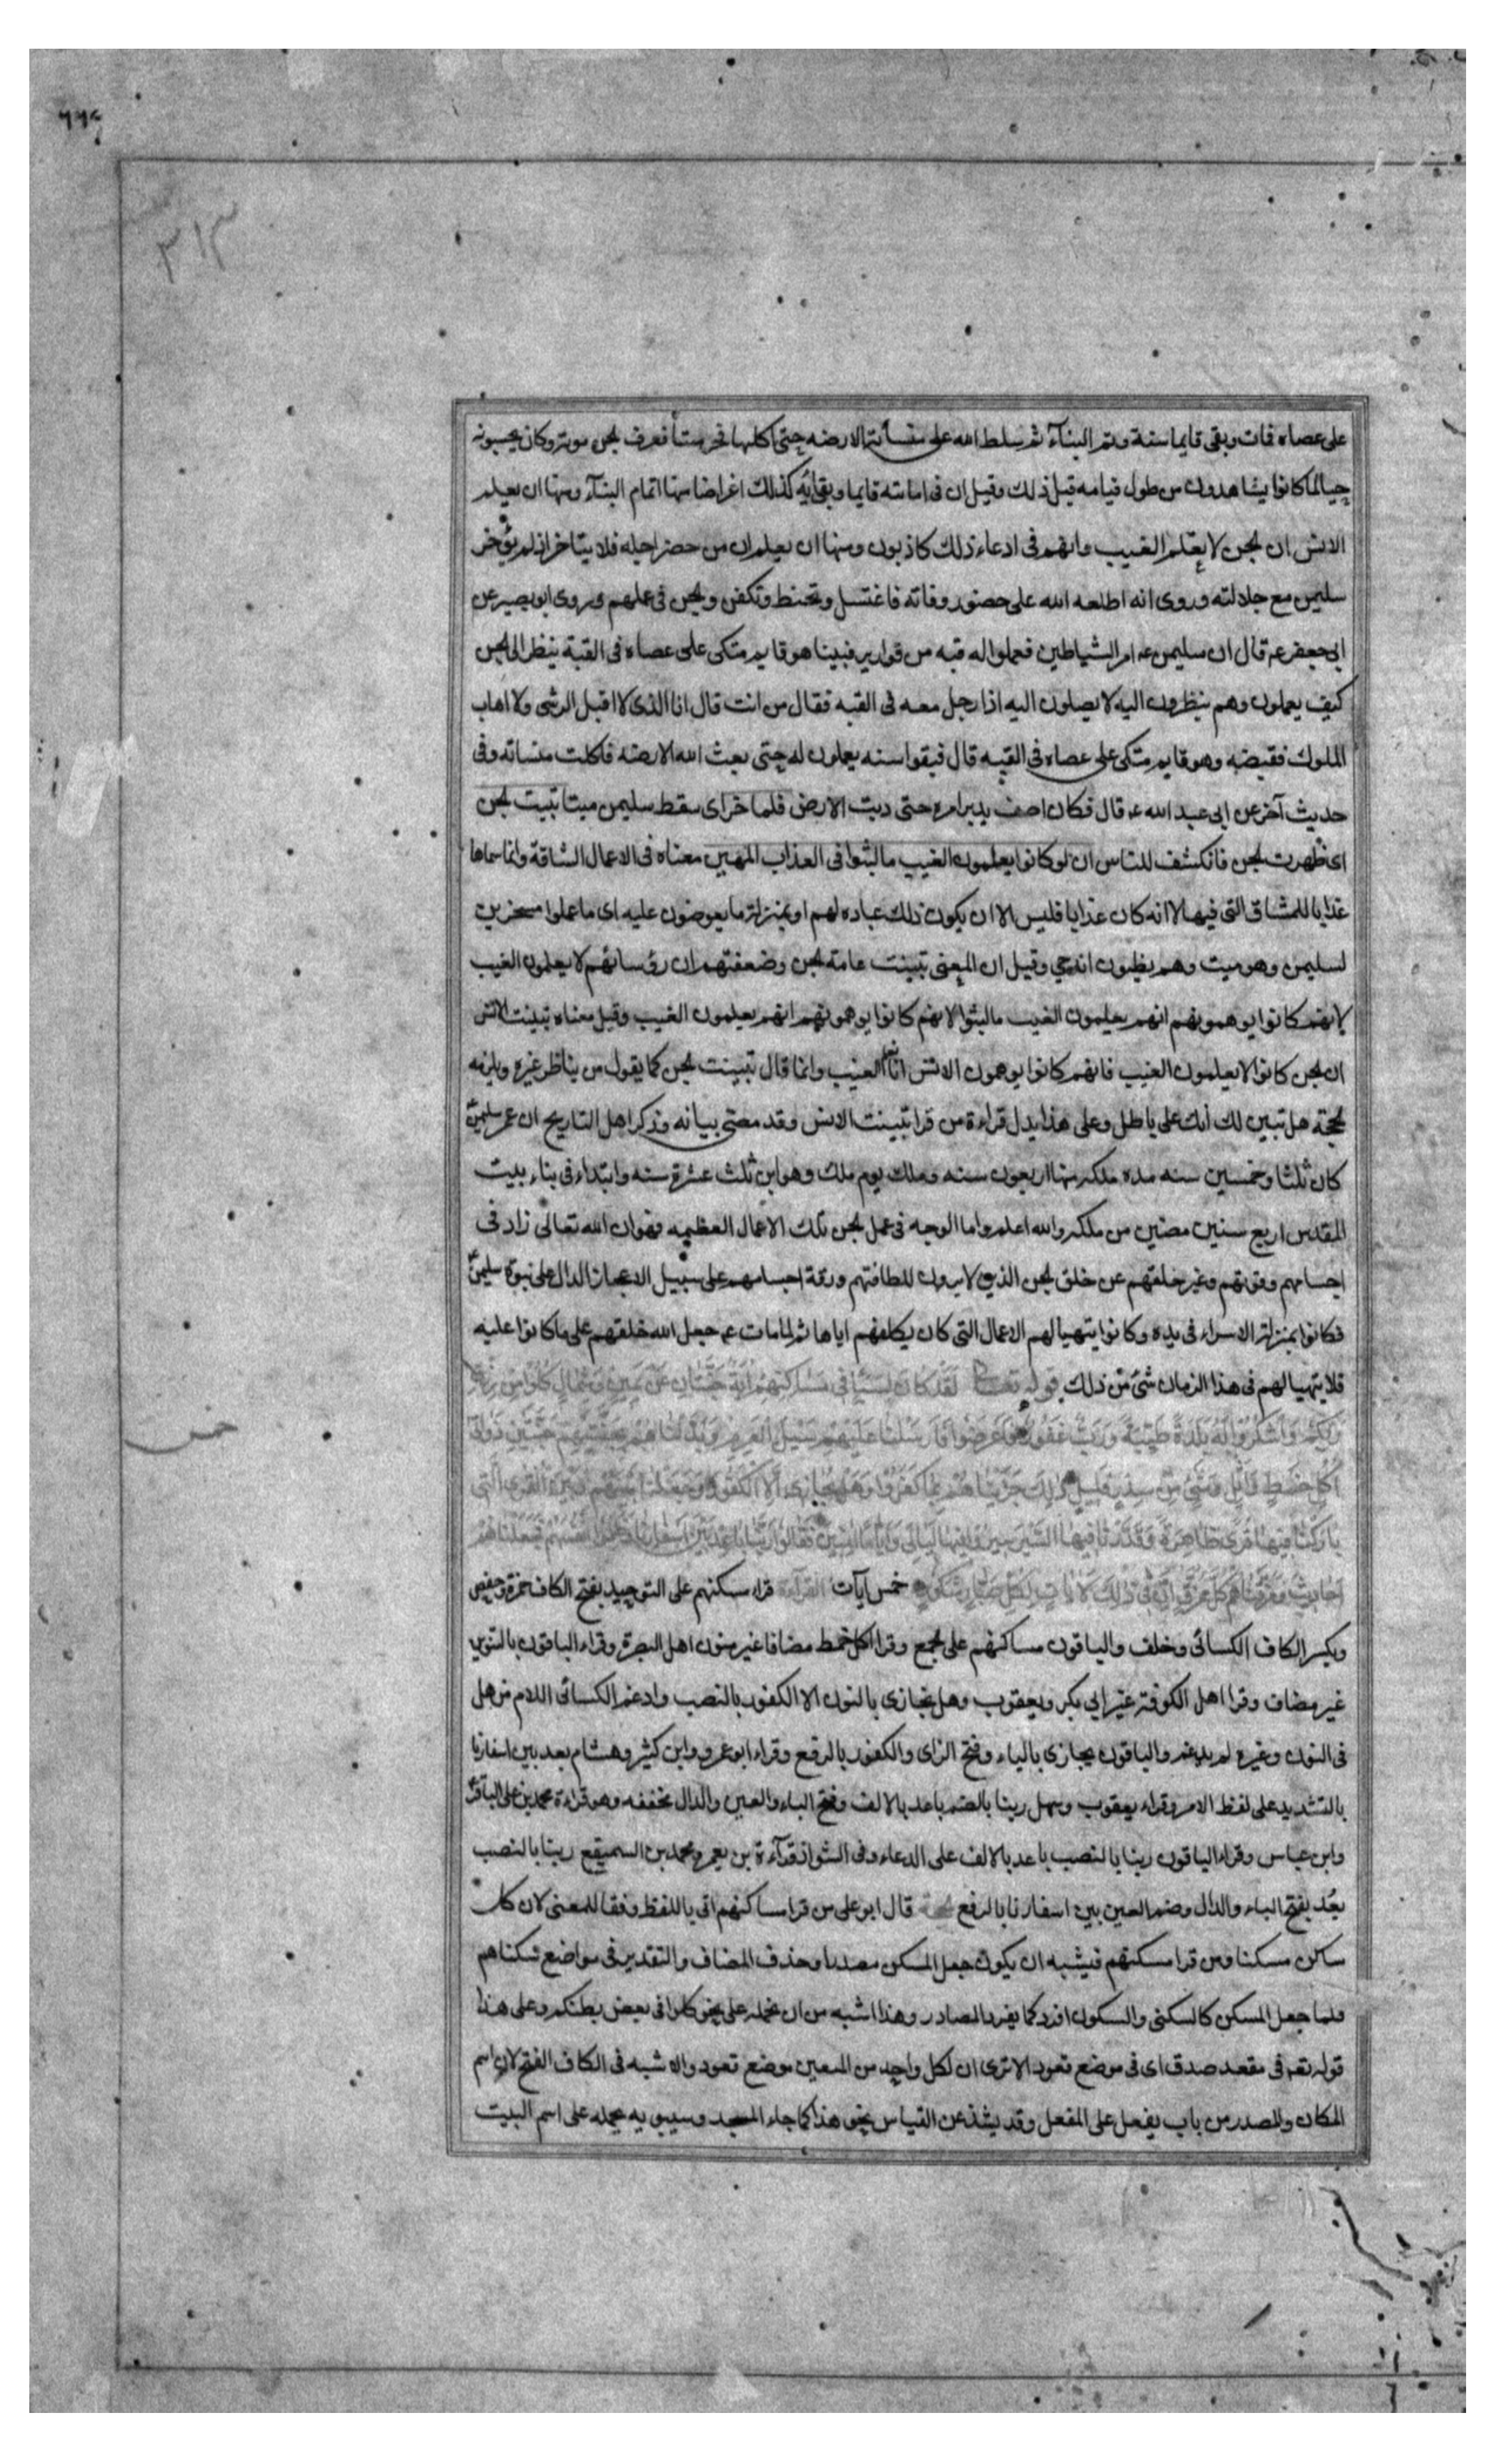 ٦٦٤
٣١٣
على عصاه فمات وبقى قايما سنة وتم البنآء ثم سلط الله على منسأته الارضه حتى اكلها فخر ميتا فعرف لجن موته وكان يحسبونه
حيا لما كانوا يشاهدون من طول قيامه قبل ذلك وقيل ان فى اماتته قايما وبقائه كذلك اغراضا منها اتمام البنآء ومنها ان يعلم
الانس ان لجن لا يعلم الغيب وانهم فى ادعاء ذلك كاذبون ومنها ان يعلم ان من حضر اجله فلا يتاخر اذ لم يؤخر
سليمن مع جلالته وروى انه اطلعه الله على حضور وفاته فاغتسل وتحنط وتكفن ولجن فى عملهم وروى ابو بصير عن
ابى جعفر ع قال ان سليمن ع امر الشياطين فعملوا له قبه من قوارير فبينا هو قايم متكى على عصاه فى القبة ينظر الى لجن
كيف يعملون وهم ينظرون اليه لا يصلون اليه اذا رجل معه فى القبه فقال من انت قال انا الذى لا اقبل الرشى ولا اهاب
الملوك فقبضه وهو قايم متكى على عصاه فى القبه قال فبقوا سنه يعملون له حتى بعث الله الارضه فاكلت منساته وفى
حديث آخر عن ابى عبد الله ع قال فكان اصف يدبر امره حتى دبت الارض فلما خر اى سقط سليمن ميتا تبينت لجن
اى ظهرت لجن فانكشف للناس ان لو كانوا يعلمون الغيب ما لبثوا فى العذاب المهين معناه فى الاعمال الشاقة وانما سماها
عذابا للمشاق التى فيها لا انه كان عذابا فليس الا ان يكون ذلك عباده لهم او بمنزلة ما يعوضون عليه اى ما عملوا مسخرين
لسليمن وهو ميت وهم يظنون انه حي وقيل ان المعنى تبينت عامة لجن وضعفتهم ان رؤسائهم لا يعلمون الغيب
لانهم كانوا يوهمونهم انهم يعلمون الغيب ما لبثوا لانهم كانوا يوهمونهم انهم يعلمون الغيب وقيل معناه تبينت الانس
ان لجن كانوا لا يعلمون الغيب فانهم كانوا يوهمون الانس انا نعلم الغيب وانما قال تبينت لجن كما يقول من يناظر غيره ويلزمه
لحجة هل تبين لك انك على باطل وعلى هذا يدل قراءة من قرا تبينت الانس وقد مضى بيانه وذكر اهل التاريخ ان عمر سليمن
كان ثلثا وخمسين سنه مده ملكه منها اربعون سنه وملك يوم ملك وهو ابن ثلث عشرة سنه وابتداء فى بناء بيت
المقدس اربع سنين مضين من ملكه والله اعلم واما الوجه فى عمل لجن تلك الاعمال العظيمه فهو ان الله تعالى زاد فى
اجسامهم وقوتهم وغير خلقهم عن خلق لجن الذين لا يرون للطافتهم ورقة اجسامهم على سبيل الاعجاز الدال على نبوة سليمن
فكانوا بمنزلة الاسراء فى يده وكانوا يتهيا لهم الاعمال التى كان يكلفهم اياها ثم لما مات ع جعل الله خلقهم على ما كانوا عليه
فلا يتهيا لهم فى هذا الزمان شئ من ذلك قوله تعالى لَقَدْ كَانَ لِسَبَإٍ فِى مَسَاكِنِهِمْ آيَةٌ جَنَّتَانِ عَنْ يَمِينٍ وَشِمَالٍ كُلُوا مِنْ رِزْقِ
رَبِّكُمْ وَاشْكُرُوا لَهُ بَلْدَةٌ طَيِّبَةٌ وَرَبٌّ غَفُورٌ فَأَعْرَضُوا فَأَرْسَلْنَا عَلَيْهِمْ سَيْلَ الْعَرِمِ وَبَدَّلْنَاهُمْ بِجَنَّتَيْهِمْ جَنَّتَيْنِ ذَوَاتَىْ
خمس
أُكُلٍ خَمْطٍ وَأَثْلٍ وَشَىْءٍ مِنْ سِدْرٍ قَلِيلٍ ذَلِكَ جَزَيْنَاهُمْ بِمَا كَفَرُوا وَهَلْ نُجَازِى إِلَّا الْكَفُورَ وَجَعَلْنَا بَيْنَهُمْ وَبَيْنَ الْقُرَى الَّتِى
بَارَكْنَا فِيهَا قُرًى ظَاهِرَةً وَقَدَّرْنَا فِيهَا السَّيْرَ سِيرُوا فِيهَا لَيَالِىَ وَأَيَّامًا آمِنِينَ فَقَالُوا رَبَّنَا بَاعِدْ بَيْنَ أَسْفَارِنَا وَظَلَمُوا أَنْفُسَهُمْ فَجَعَلْنَاهُمْ
أَحَادِيثَ وَمَزَّقْنَاهُمْ كُلَّ مُمَزَّقٍ إِنَّ فِى ذَلِكَ لَآيَاتٍ لِكُلِّ صَبَّارٍ شَكُورٍ خمس آيات القراءة قراء مسكنهم على التوحيد بفتح الكاف حمزة وحفص
وبكسر الكاف الكسائى وخلف والباقون مساكنهم على لجمع وقرا اكل خمط مضافا غير منون اهل البصرة وقراء الباقون بالتنوين
غير مضاف وقرا اهل الكوفة غير ابى بكر ويعقوب وهل نجازى بالنون الا الكفور بالنصب وادغم الكسائى اللام من هل
فى النون وغيره لم يدغم والباقون يجازى بالياء وفتح الزاى والكفور بالرفع وقراء ابو عمرو وابن كثير وهشام بعد بين اسفارنا
بالتشديد على لفظ الامر وقراء يعقوب وسهل ربنا بالضم باعد بالالف وفتح الباء والعين والدال مخففه وهو قراءة محمد بن على الباقر
وابن عباس وقراء الباقون ربنا بالنصب باعد بالالف على الدعاء وفى الشواذ قرآءة بن يعمر ومحمد بن السميقع ربنا بالنصب
بعُد بفتح الباء والدال وضم العين بين اسفارنا بالرفع لحجة قال ابو على من قرا مساكنهم اتى باللفظ وفقا للمعنى لان كل
ساكن مسكنا ومن قرا مسكنهم فيشبه ان يكون جعل المسكن مصدرا وحذف المضاف والتقدير فى مواضع سكناهم
فلما جعل المسكن كالسكنى والسكون افرد كما يفرد المصادر وهذا اشبه من ان تحمله على نحو كلوا فى بعض بطنكم وعلى هذا
قوله تعه فى مقعد صدق اى فى موضع قعود الا ترى ان لكل واحد من المتقين موضع قعود والاشبه فى الكاف الفتح لان اسم
المكان والمصدر من باب يفعل على المفعل وقد يشذ عن القياس نحو هذا كما جاء المسجد وسيبويه يحمله على اسم البيت